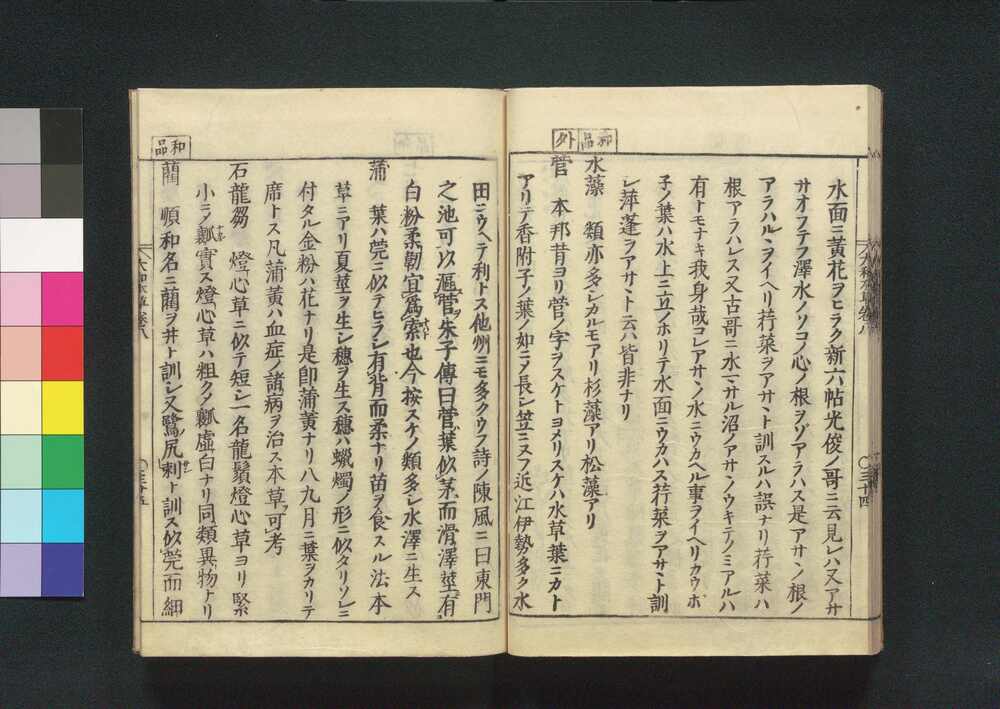 水面ニ黄花ヲヒラク新六帖光俊ノ哥ニ云見レハ又アサ
サオフテフ澤水ノソコノ心ノ根ヲゾアラハス是アサヽノ根ノ
アラハルヽヲイヘリ荇菜ヲアサヽト訓スルハ誤ナリ荇菜ハ
根アラハレス又古哥ニ水マサル沼ノアサヽノウキテノミアルハ
有トモナキ我身哉コレアサヽノ水ニウカヘル事ヲイヘリカウホ
子ノ葉ハ水上ニ立ノホリテ水面ニウカハス荇菜ヲアサヽト訓
シ萍蓬ヲアサヽト云ハ皆非ナリ
和品 外
水藻 類亦多シカルモアリ杉藻アリ松藻アリ
菅 本邦昔ヨリ菅ノ字ヲスケトヨメリスケハ水草葉ニカト
アリテ香附子ノ葉ノ如ニメ長シ笠ニヌフ近江伊勢多ク水
田ニウヘテ利トス他州ニモ多クウフ詩ノ陳風ニ曰東門
之池可以漚菅朱子傳曰菅葉似茅而滑澤莖有
白粉柔韌宜爲索也今按スケノ類多シ水澤ニ生ス
蒲 葉ハ莞ニ似テヒラシ有背而柔ナリ苗ヲ食スル法本
草ニアリ夏莖ヲ生シ穗ヲ生ス穗ハ蝋燭ノ形ニ似タリソレニ
付タル金粉ハ花ナリ是即蒲黄ナリ八九月ニ葉ヲカリテ
席トス凡蒲黄ハ血症ノ諸病ヲ治ス本草可考
石龍芻 燈心草ニ似テ短シ一名龍鬚燈心草ヨリ緊
小ニメ瓤實ス燈心草ハ粗クメ瓤虚白ナリ同類異物ナリ
和品
藺 順和名ニ藺ヲ井ト訓シ又鷺尻刺ト訓ス似莞而細
大和本草卷八
○三十四
大和本草卷八
○三十五